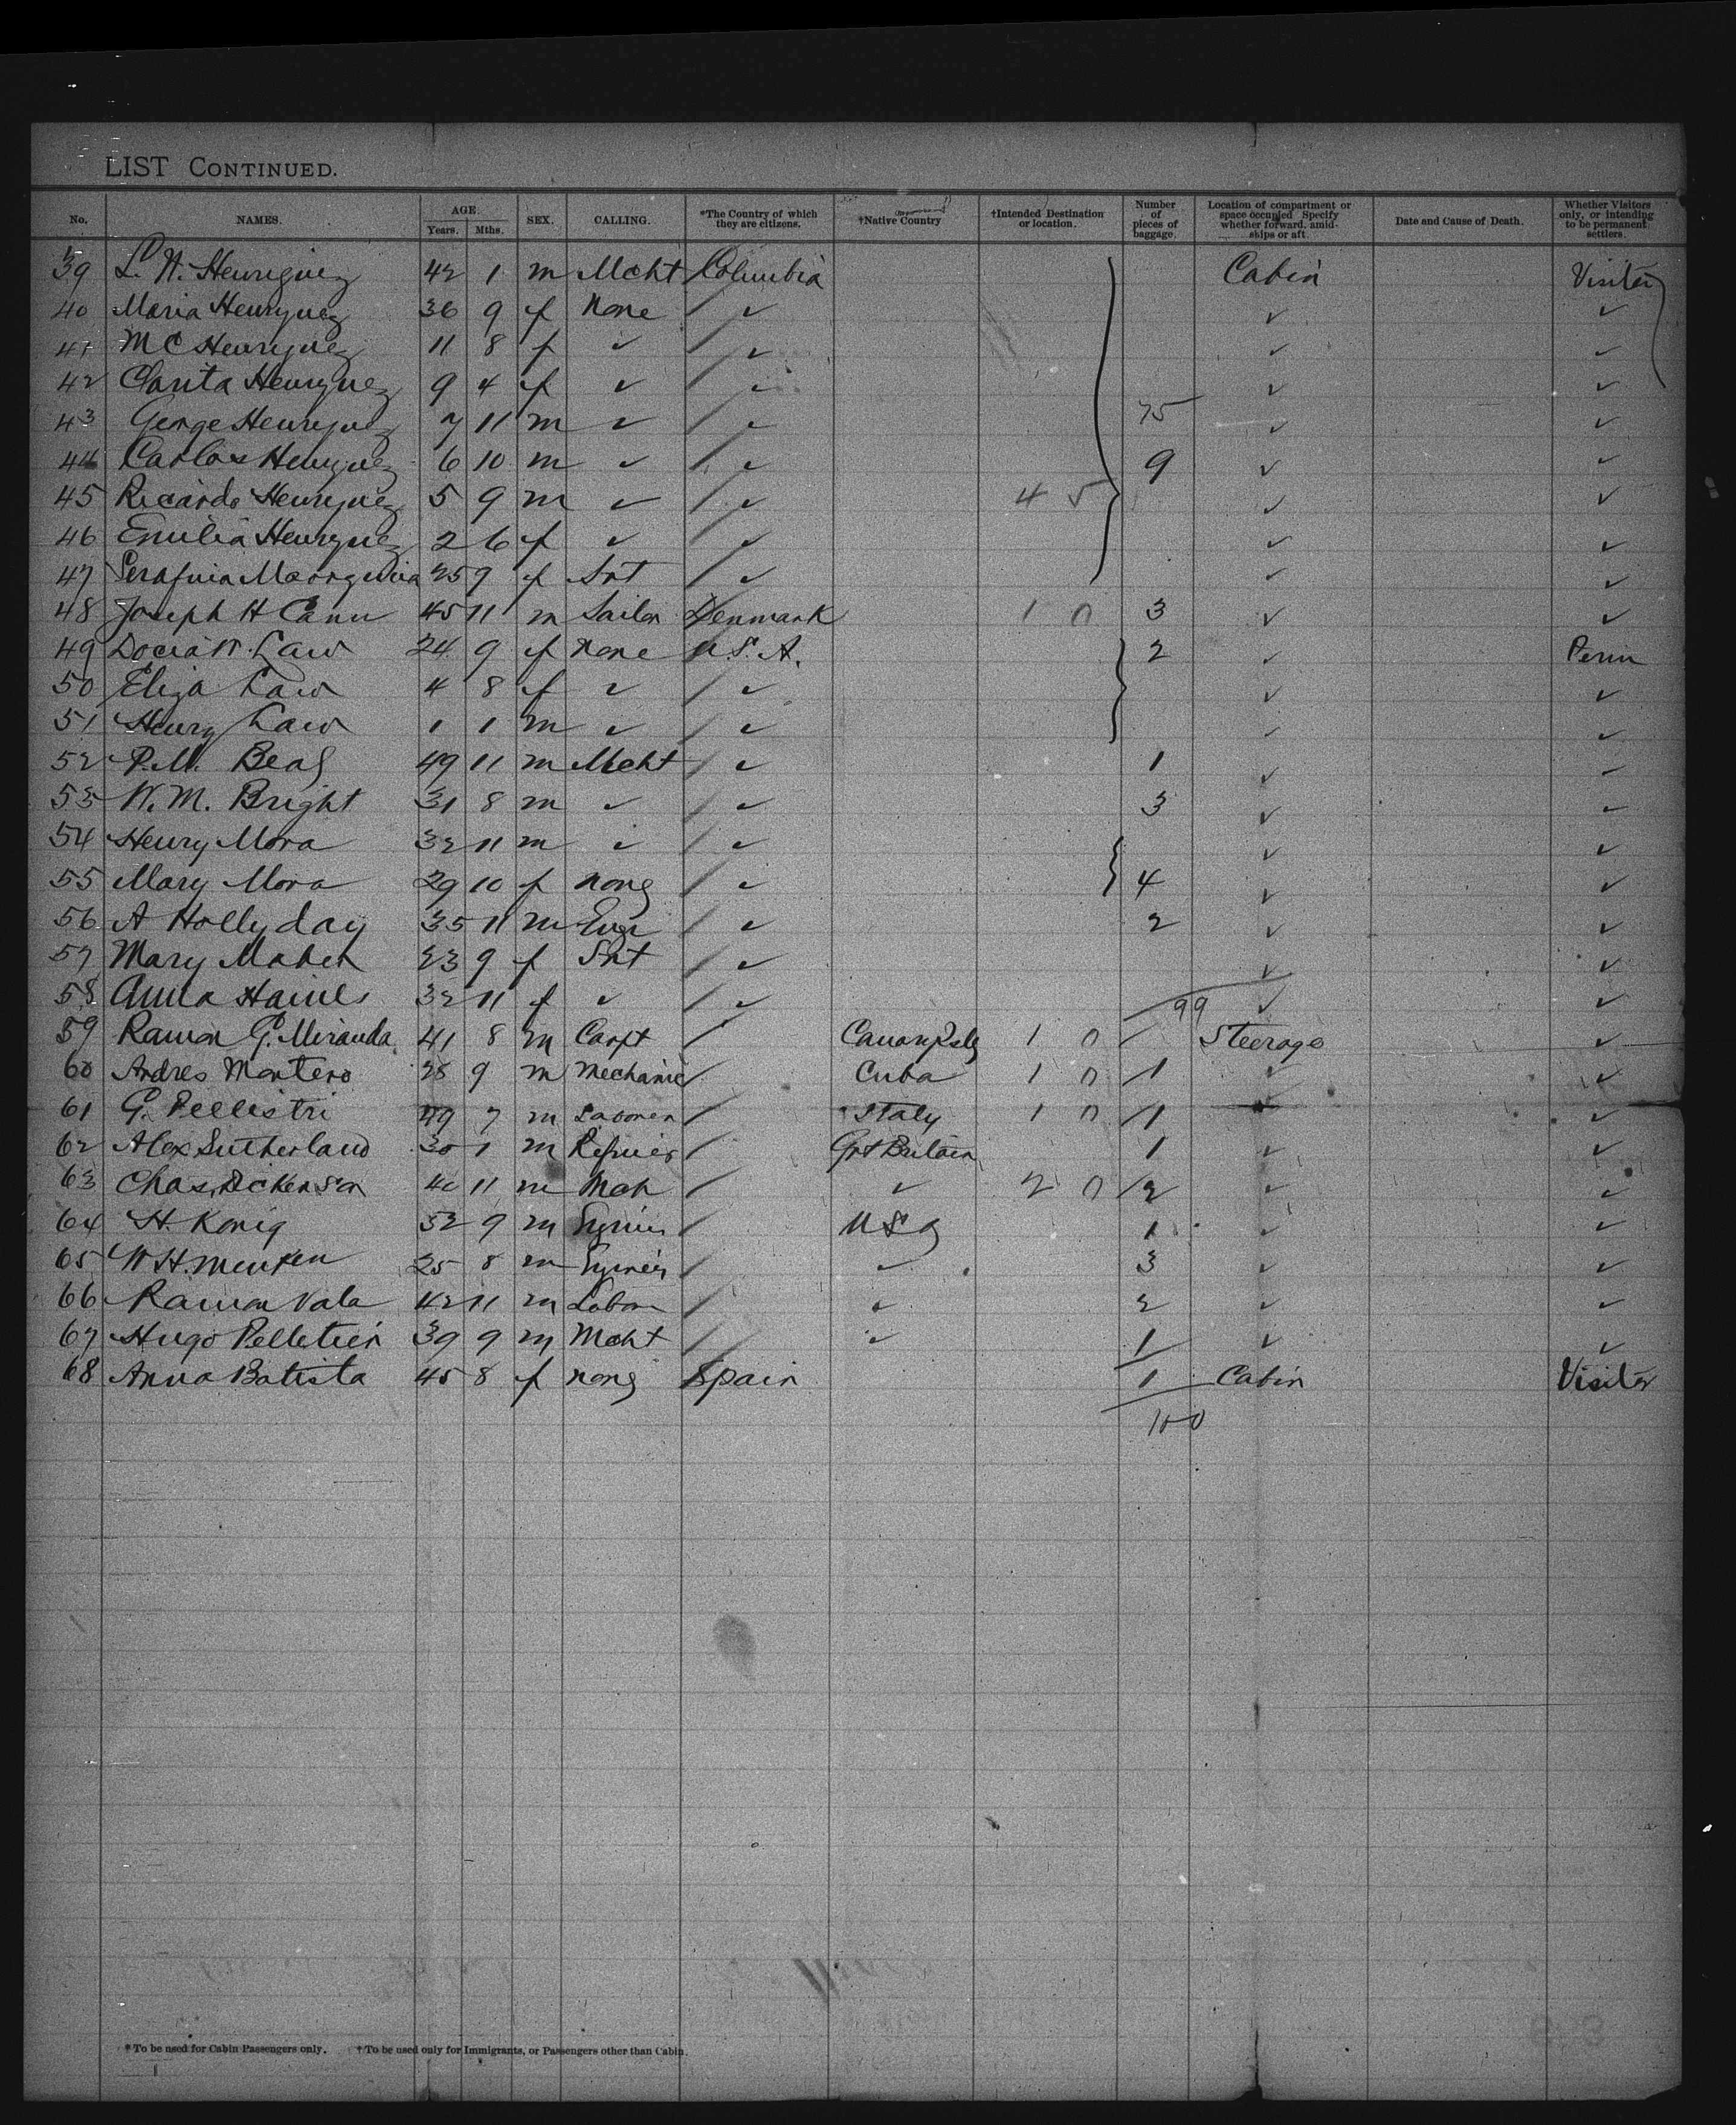 LIST CONTINUED.
No. NAMES. AGE. Years. Mths. SEX. CALLING. *The Country of which they are citizens. †Native Country †Intended Destination or location. Number of pieces of baggage. Location of compartment or space occupied. Specify whether forward, amid-ships or aft. Date and Cause of Death. Whether Visitors only, or intending to be permanent settlers.
39 L. H. Henriquez 42 1 m Mcht Columbia Cabin Visitor
40 Maria Henriquez 36 9 f None ✓ ✓ ✓
41 M C Henriquez 11 8 f ✓ ✓ ✓ ✓
42 Clarita Henriquez 9 4 f ✓ ✓ ✓ ✓
43 George Henriquez 7 11 m ✓ ✓ 75 ✓ ✓
44 Carlos Henriquez 6 10 m ✓ ✓ 9 ✓ ✓
45 Ricardo Henriquez 5 9 m ✓ ✓ 4 5 ✓ ✓
46 Emilia Henriquez 2 6 f ✓ ✓ ✓ ✓
47 25 9 f Snt ✓ ✓ ✓
48 Joseph H Cann 45 11 m Sailor Denmark 1 0 3 ✓ ✓
49 Law 24 9 f None U.S.A. 2 ✓ Perm
50 Eliza Law 4 8 f ✓ ✓ ✓ ✓
51 Henry Law 1 1 m ✓ ✓ ✓ ✓
52 P.M. Beal 49 11 m Mcht ✓ 1 ✓ ✓
53 W. M. Bright 31 8 m ✓ ✓ 3 ✓ ✓
54 Henry Mora 32 11 m ✓ ✓ ✓ ✓
55 Mary Mora 29 10 f None ✓ 4 ✓ ✓
56 A Hollyday 35 11 m Engr ✓ 2 ✓ ✓
57 Mary Maher 23 9 f Snt ✓ ✓ ✓
58 Anna Haines 32 11 f ✓ ✓ 99 ✓ ✓
59 Ramon G. Miranda 41 8 m Carpt 1 0 Steerage ✓
60 Andres Montero 28 9 m Mechanic Cuba 1 0 1 ✓ ✓
61 G. Pellistri 49 7 m Laborer Italy 1 0 1 ✓ ✓
62 Alex Sutherland 30 1 m Refiner Grt Britain 1 ✓ ✓
63 Chas Dickenson 40 11 m ✓ 2 0 2 ✓ ✓
64 H. Konig 52 9 m USA 1 ✓ ✓
65 W H. Menken 25 8 m Engineer ✓ 3 ✓ ✓
66 Ramon Vala 42 11 m Labor ✓ 2 ✓ ✓
67 Hugo Pelletier 39 9 m Mcht ✓ 1 ✓ ✓
68 Anna Batista 45 8 f None Spain 1 Cabin Visitor
100
* To be used for Cabin Passengers only. † To be used only for Immigrants, or Passengers other than Cabin.